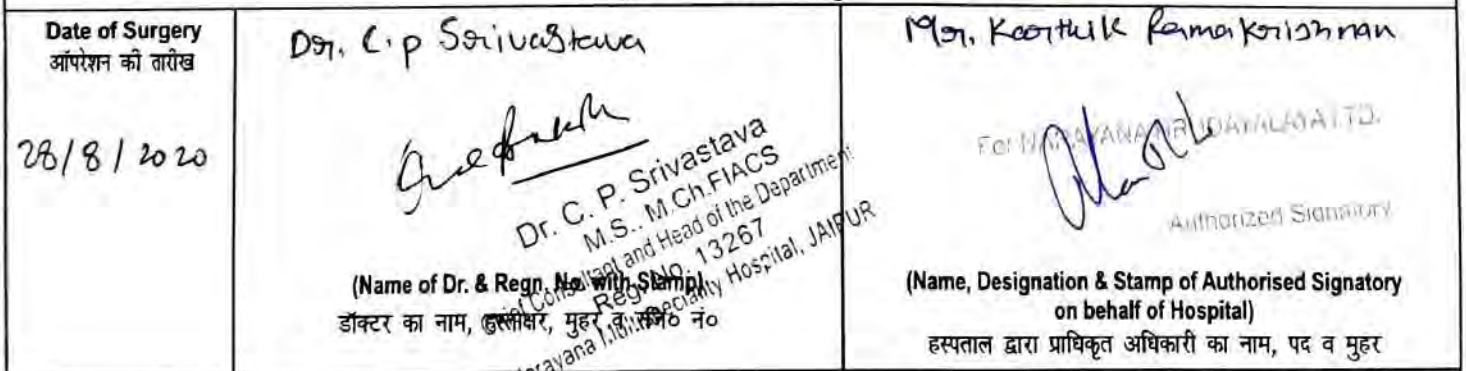 Date of Surgery
ऑपरेशन की तारीख
28/8/2020
Dr. C.p Srivastava
Dr. C. P. Srivastava
M.S., M.Ch.FIACS
Consultant and Head of the Department
Reg. No. 13267
Narayana Multispeciality Hospital, JAIPUR
(Name of Dr. & Regn. No. with Stamp)
डॉक्टर का नाम, हस्ताक्षर, मुहर व रजि० नं०
Mr. Karthik Ramakrishnan
For NARAYANA HRUDAYALAYA LTD.
Authorized Signatory
(Name, Designation & Stamp of Authorised Signatory
on behalf of Hospital)
हस्पताल द्वारा प्राधिकृत अधिकारी का नाम, पद व मुहर